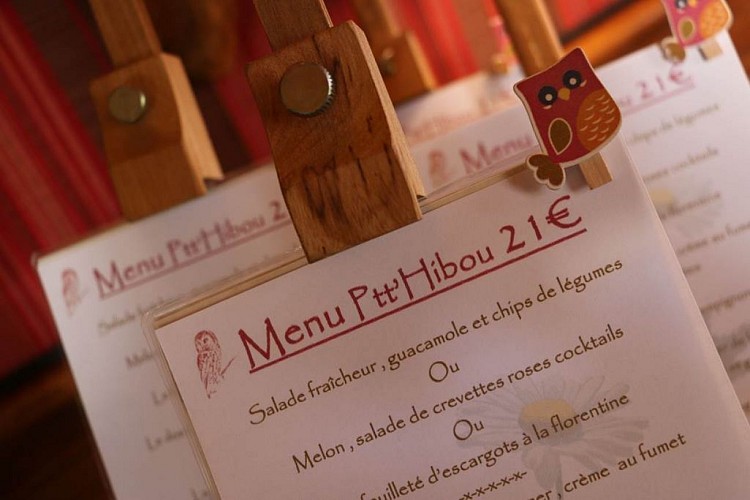 Menu Ptt'Hibou 21€
Salade fraîcheur , guacamole et chips de légumes
Ou
Melon , salade de crevettes roses cocktails
Ou
feuilleté d'escargots à la florentine
-x-x-x-x-x-
, crème au fumet
Menu Ptt'Hibou 2
Salade
Menu
21€
chips de légumes
cocktails
florentine
au fumet